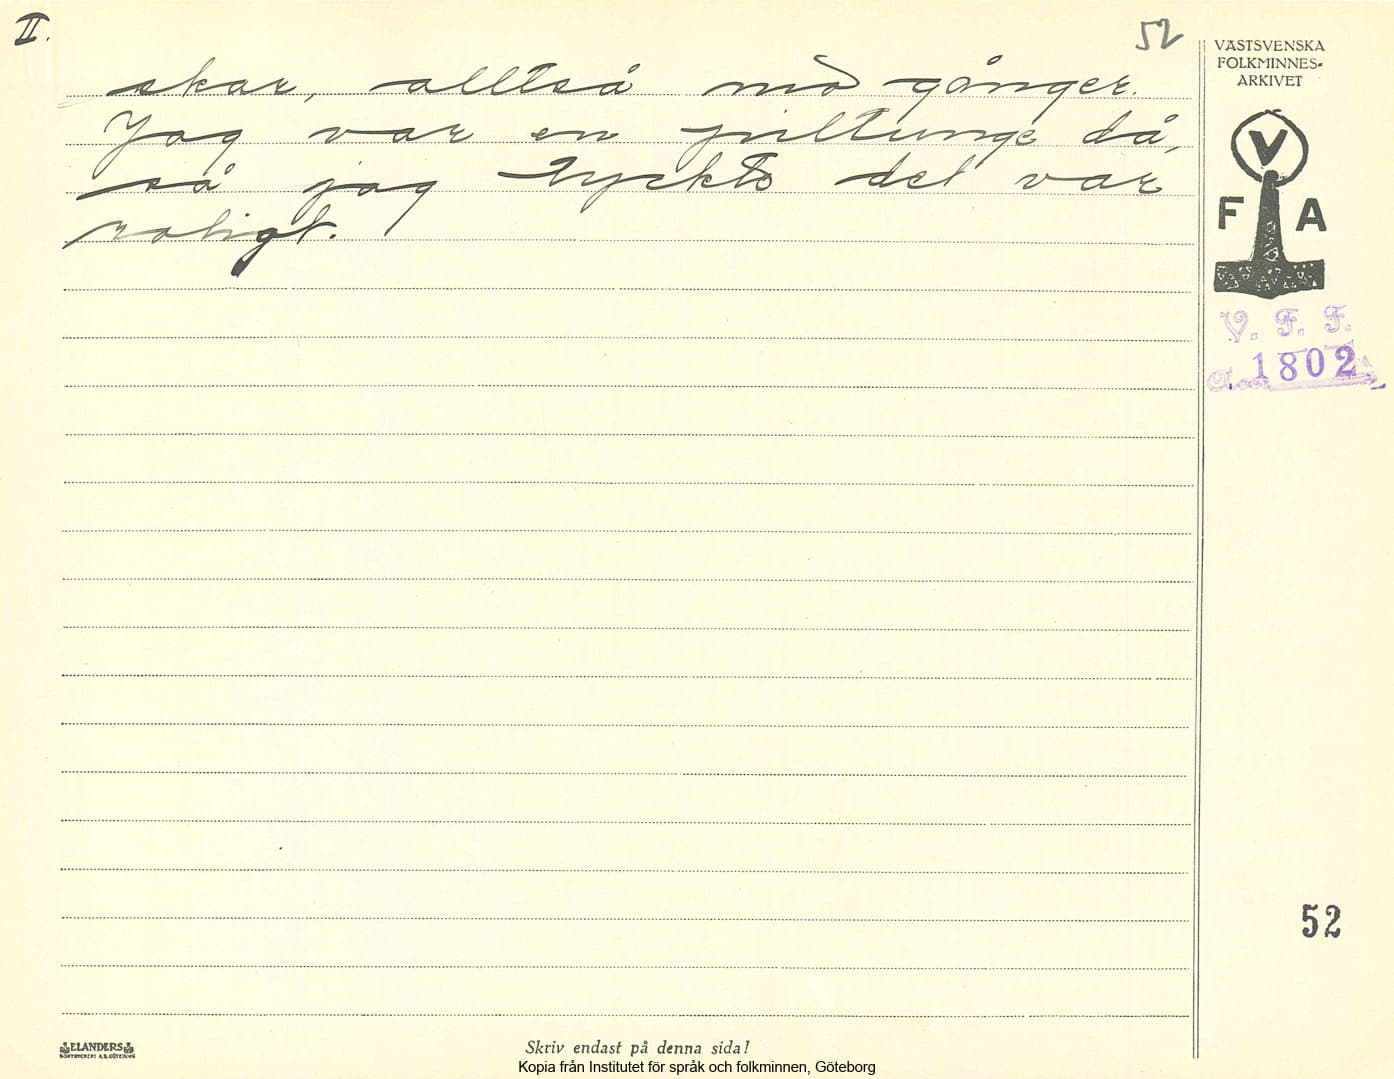 II.
52
skar, alltså nio gånger.
Jag var en piltunge då,
så jag tyckte det var
roligt.
VÄSTSVENSKA
FOLKMINNES-
ARKIVET
V
F A
V. F. F.
1802
52
ELANDERS
Skriv endast på denna sida!
Kopia från Institutet för språk och folkminnen, Göteborg